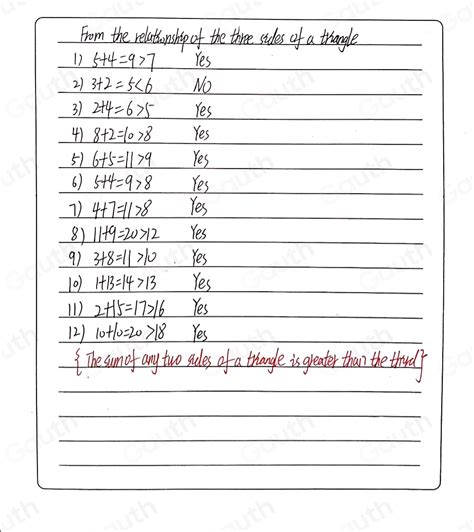 From the relationship of the three sides of a triangle
1) 5+4=9>7 Yes
2) 3+2=5<6 NO
3) 2+4=6>5 Yes
4) 8+2=10>8 Yes
5) 6+5=11>9 Yes
6) 5+4=9>8 Yes
7) 4+7=11>8 Yes
8) 11+9=20>12 Yes
9) 3+8=11>10 Yes
10) 1+13=14>13 Yes
11) 2+15=17>16 Yes
12) 10+10=20>18 Yes
{The sum of any two sides of a triangle is greater than the third}